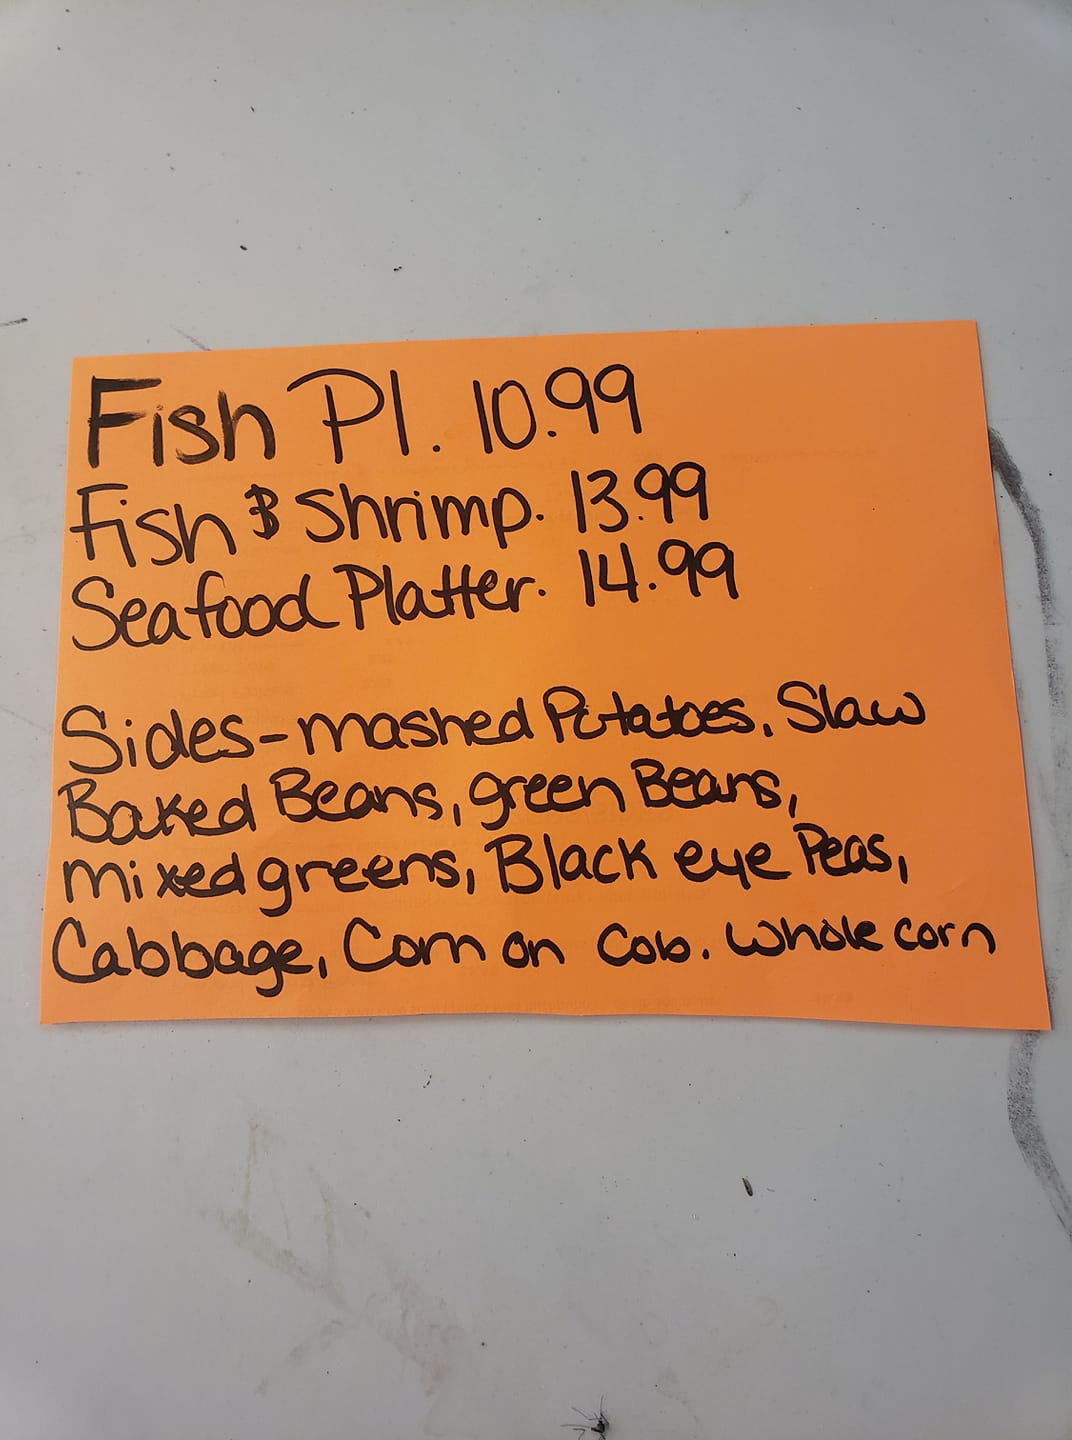 Fish Pl. 10.99
Fish & Shrimp. 13.99
Seafood Platter. 14.99
Sides - mashed Potatoes, Slaw
Baked Beans, green Beans,
mixed greens, Black eye Peas,
Cabbage, Corn on Cob. Whole corn